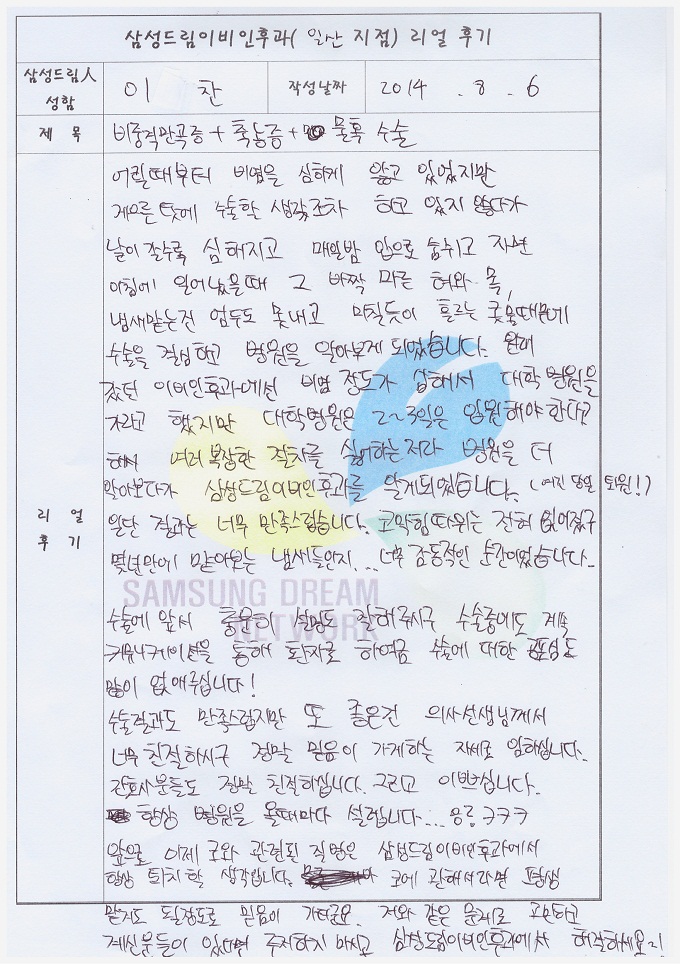 삼성드림이비인후과( 일산 지점) 리얼 후기
삼성드림人 성함 이 찬 작성날짜 2014 . 8 . 6
제 목 비중격만곡증 + 축농증 + 물혹 수술
리 얼 후 기
어릴때부터 비염을 심하게 앓고 있었지만
게으른 탓에 수술할 생각조차 하고 있지 않다가
날이 갈수록 심해지고 매일밤 입으로 숨쉬고 자면
아침에 일어났을때 그 바짝 마른 혀와 목,
냄새맡는건 엄두도 못내고 미칠듯이 흐르는 콧물때문에
수술을 결심하고 병원을 알아보게 되었습니다. 원래
갔던 이비인후과에선 비염 정도가 심해서 대학병원을
가라고 했지만 대학병원은 2~3일은 입원해야 한다고
해서 여러 복잡한 절차를 싫어하는지라 병원을 더
알아보다가 삼성드림이비인후과를 알게되었습니다. (여긴 당일 퇴원!)
일단 결과는 너무 만족스럽습니다. 코막힘따위는 전혀 없어졌구
몇년만에 맡아보는 냄새들인지... 너무 감동적인 순간이었습니다..
SAMSUNG DREAM
NETWORK
수술에 앞서 충분히 설명도 잘해주시구 수술중에도 계속
커뮤니케이션을 통해 환자로 하여금 수술에 대한 공포심도
많이 없애주십니다!
수술결과도 만족스럽지만 또 좋은건 의사선생님께서
너무 친절하시구 정말 믿음이 가게하는 자세로 임하십니다.
간호사분들도 정말 친절하십니다. 그리고 이쁘십니다.
항상 병원을 올때마다 설렙니다... 응? ㅋㅋㅋ
앞으로 이제 코와 관련된 질병은 삼성드림이비인후과에서
항상 퇴치할 생각입니다. 코에 관해서라면 평생
맡겨도 될정도로 믿음이 가더군요. 저와 같은 문제로 고민하고
계신분들이 있다면 주저하지 마시고 삼성드림이비인후과에서 해결하세요!